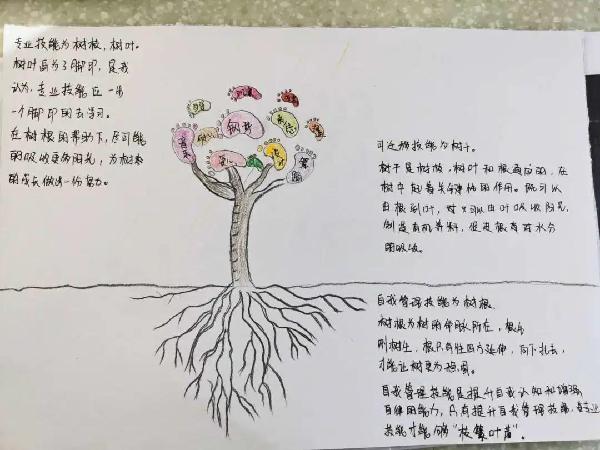 专业技能为树枝，树叶。
树叶画为了脚印，是我
认为，专业技能应一步
一个脚印的去学习。
在树根的帮助下，尽可能
的吸收更多阳光，为树木
的成长做出一份努力。
钢琴
音乐
舞蹈
可迁移技能为树干。
树干是树枝、树叶和根
在
树中起着关键性的作用。既可以
由根到叶，又可以由叶吸收阳光，
制造有机养料，促进根对水分
的吸收。
自我管理技能为树根
树根为树的命脉所在，根
则树生，根只有往四方延伸，向下扎去，
才能让树更为稳固。
自我管理技能是提升自我认知和增强
自律的能力，只有提升自我管理技能，专业
技能才能够“枝繁叶茂”。